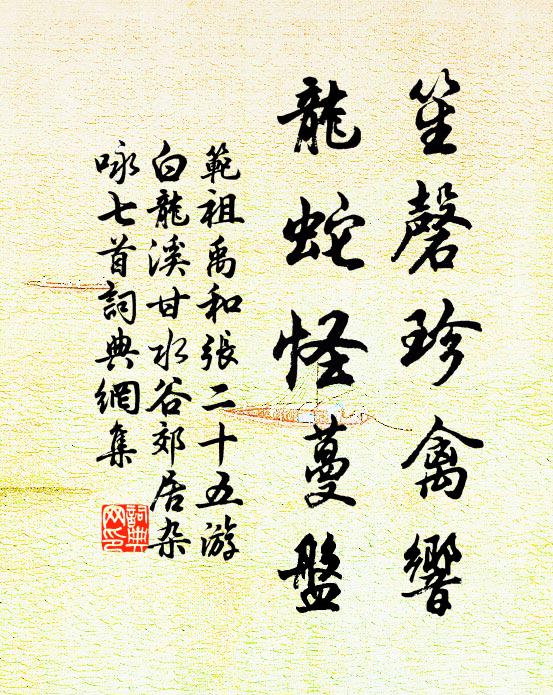 笙磬珍禽響
龍蛇怪蔓盤
範祖禹和張二十五游
白龍溪甘水谷郊居杂
咏七首詞典網集
詞典网印